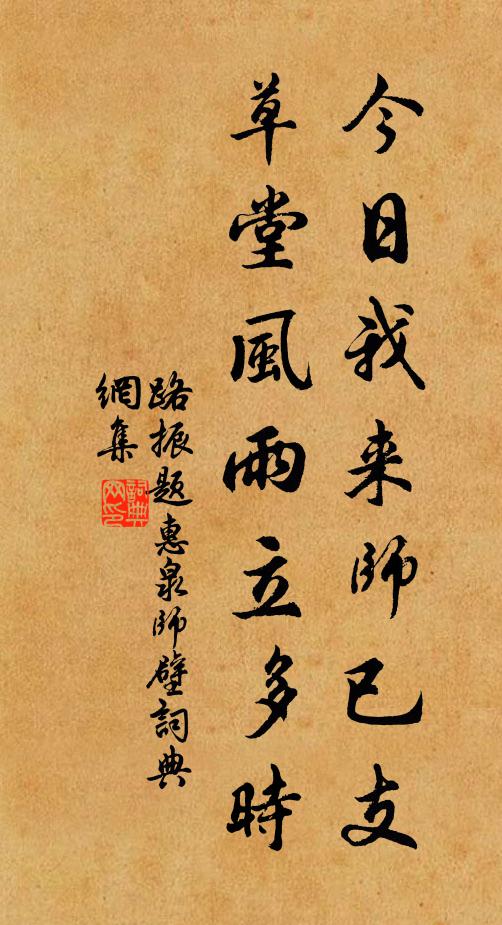 今日我来師已支
草堂風雨立多時
路振題惠泉師壁詞典
網集
詞典
网印